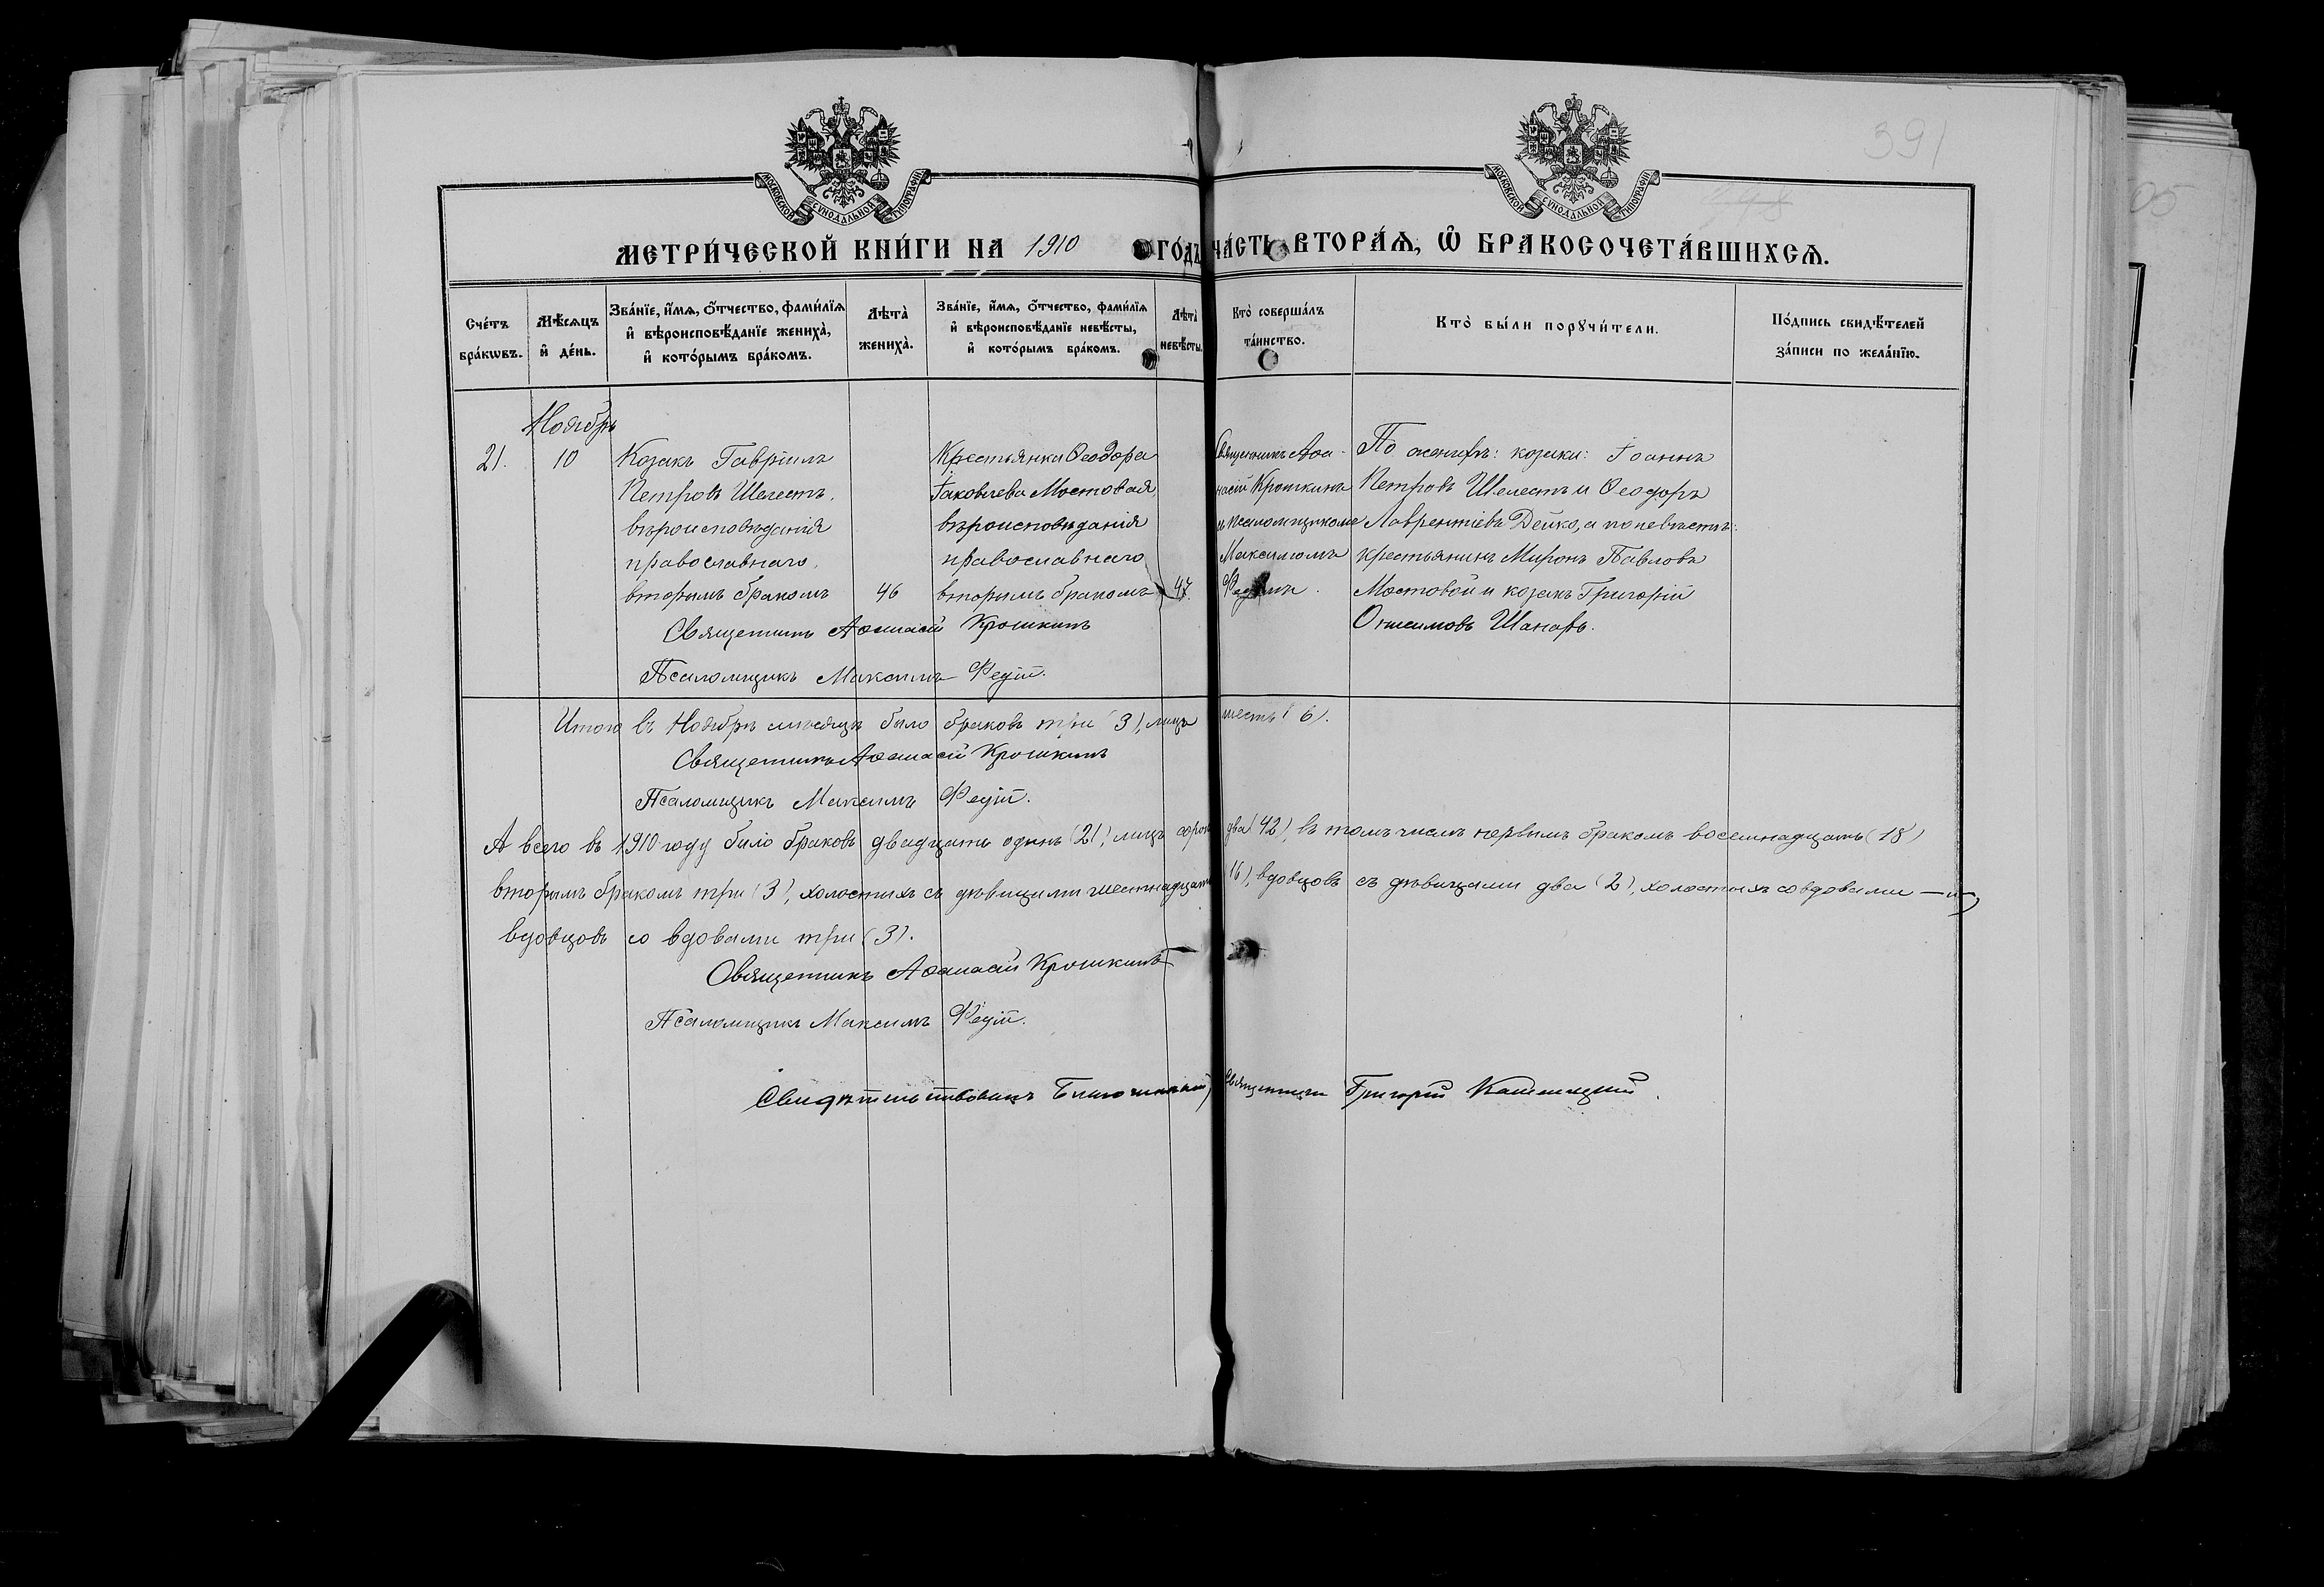 391
МОСКОВСКОЙ СѴНОДАЛЬНОЙ ТИПОГРАФІИ
МОСКОВСКОЙ СѴНОДАЛЬНОЙ ТИПОГРАФІИ
МЕТРИ́ЧЕСКОЙ КНИ́ГИ НА 1910 ГО́ДЪ ЧА́СТЬ ВТОРА́Ѧ, Ѽ БРАКОСОЧЕТА́ВШИХСѦ.
Сче́тъ бра́кѡвъ.
Мѣ́сѧцъ и҆ де́нь.
Зва́нїе, и҆́мѧ, ѻ҆́тчество, фами́лїѧ и҆ вѣроисповѣ́данїе жениха̀, и҆ кото́рымъ бра́комъ.
Лѣта̀ жениха̀.
Зва́нїе, и҆́мѧ, ѻ҆́тчество, фами́лїѧ и҆ вѣроисповѣ́данїе невѣ́сты, и҆ кото́рымъ бра́комъ.
Лѣта̀ невѣ́сты.
Кто̀ соверша́лъ та́инство.
Кто̀ бы́ли порꙋчи́тели.
По́дпись свидѣ́телей за́писи по жела́нїю.
Ноябрь
21.
10
Козакъ Гавріилъ
Петровъ Шелестъ,
вѣроисповѣданія
православнаго,
вторымъ бракомъ
46
Крестьянка Ѳеодора
Іаковлева Мостовая,
вѣроисповѣданія
православнаго
вторымъ бракомъ
47.
Священникъ Аѳа-
насій Крошкинъ
съ псаломщикомъ
Максимомъ
По женихѣ: козаки: Іоаннъ
Петровъ Шелестъ и Ѳеодоръ
Лаврентіевъ Дейко, а по невѣстѣ:
крестьянинъ Миронъ Павловъ
Мостовой и козакъ Григорій
Онисимовъ Шапарь.
Священникъ Аѳанасій Крошкинъ
Псаломщикъ Максимъ Федій.
Итого въ Ноябрѣ мѣсяцѣ было браковъ три (3), лицъ шесть (6).
Священникъ Аѳанасій Крошкинъ
Псаломщикъ Максимъ Федій.
А всего въ 1910 году было браковъ двадцать одинъ (21), лицъ сорокъ два (42), въ томъ числѣ первымъ бракомъ восемнадцать (18)
вторымъ бракомъ три (3), холостыхъ съ дѣвицами шестнадцать (16), вдовцовъ съ дѣвицами два (2), холостыхъ со вдовами — и
вдовцовъ со вдовами три (3).
Священникъ Аѳанасій Крошкинъ
Псаломщикъ Максимъ Федій.
Свидѣтельствовалъ Благочинный, Священникъ Григорій